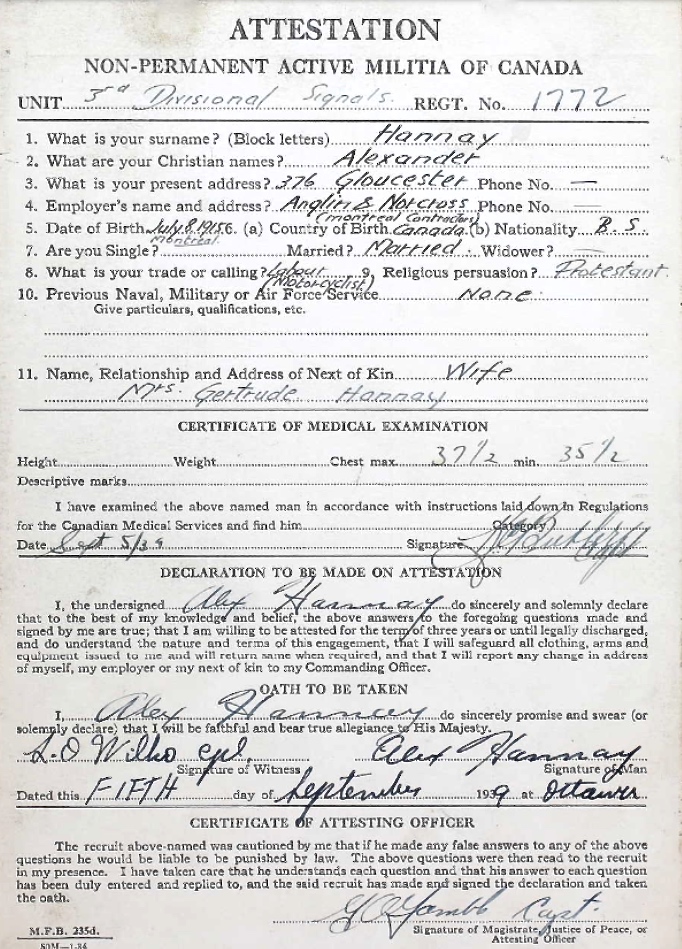 ATTESTATION
NON-PERMANENT ACTIVE MILITIA OF CANADA
UNIT 3rd Divisional Signals. REGT. No. 1772
1. What is your surname? (Block letters) Hannay
2. What are your Christian names? Alexander
3. What is your present address? 376 Gloucester Phone No. —
4. Employer's name and address? Anglin & Norcross Phone No. —
(Montreal Contractors)
5. Date of Birth July 8. 1915 6. (a) Country of Birth Canada (b) Nationality B.S.
Montreal.
7. Are you Single? Married? Married. Widower? —
8. What is your trade or calling? Labour 9. Religious persuasion? Protestant.
(Motorcyclist)
10. Previous Naval, Military or Air Force Service None.
Give particulars, qualifications, etc.
11. Name, Relationship and Address of Next of Kin Wife
Mrs. Gertrude Hannay
CERTIFICATE OF MEDICAL EXAMINATION
Height Weight Chest max. 37 1/2 min. 35 1/2
Descriptive marks
I have examined the above named man in accordance with instructions laid down in Regulations
for the Canadian Medical Services and find him Category
Date Sept 5/39 Signature
DECLARATION TO BE MADE ON ATTESTATION
I, the undersigned Alex Hannay do sincerely and solemnly declare
that to the best of my knowledge and belief, the above answers to the foregoing questions made and
signed by me are true; that I am willing to be attested for the term of three years or until legally discharged,
and do understand the nature and terms of this engagement, that I will safeguard all clothing, arms and
equipment issued to me and will return same when required, and that I will report any change in address
of myself, my employer or my next of kin to my Commanding Officer.
OATH TO BE TAKEN
I, Alex Hannay do sincerely promise and swear (or
solemnly declare) that I will be faithful and bear true allegiance to His Majesty.
Cpl. Alex Hannay
Signature of Witness Signature of Man
Dated this FIFTH day of September 1939 at Ottawa
CERTIFICATE OF ATTESTING OFFICER
The recruit above-named was cautioned by me that if he made any false answers to any of the above
questions he would be liable to be punished by law. The above questions were then read to the recruit
in my presence. I have taken care that he understands each question and that his answer to each question
has been duly entered and replied to, and the said recruit has made and signed the declaration and taken
the oath.
Capt.
Signature of Magistrate, Justice of Peace, or
Attesting Officer
M.F.B. 235d.
50M—1-36